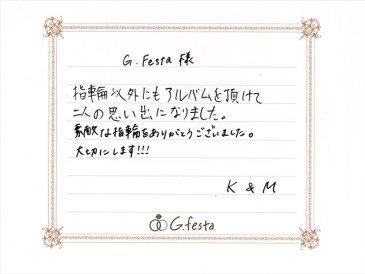 G.Festa 様
指輪以外にもアルバムを頂けて
二人の思い出になりました。
素敵な指輪をありがとうございました。
大切にします!!!
K & M
G.festa